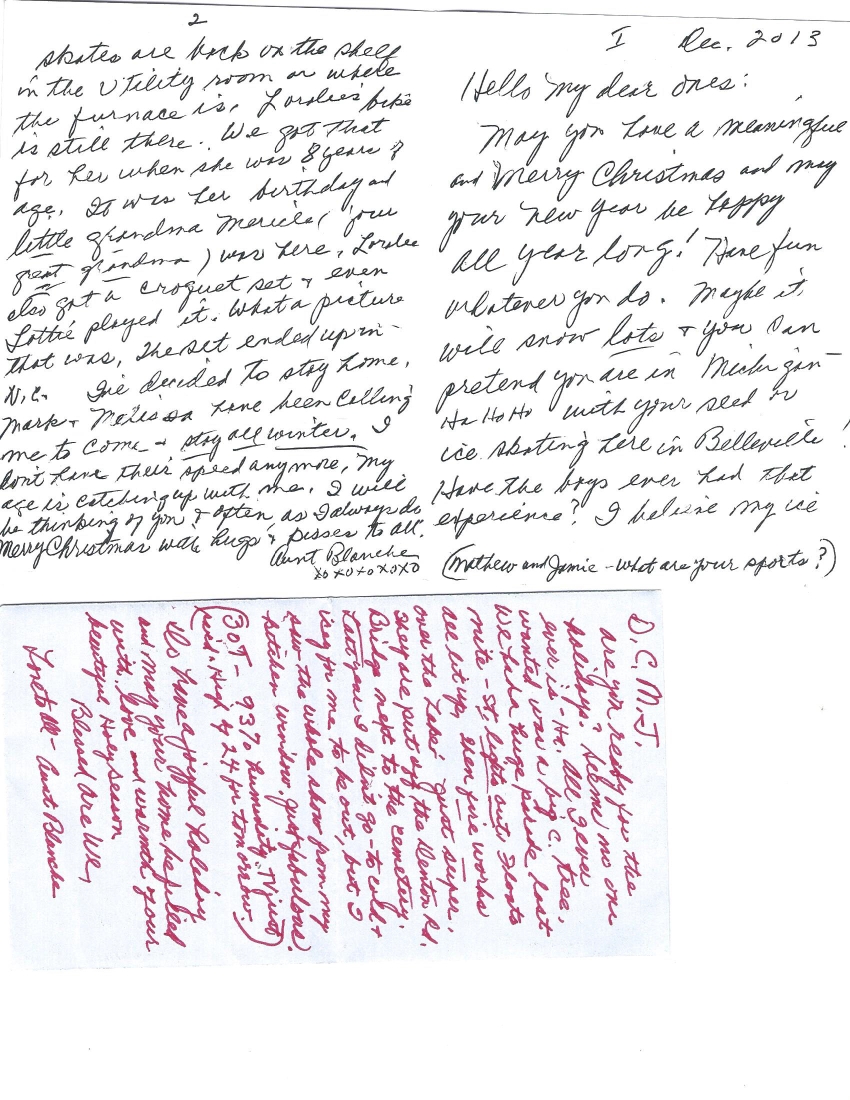 I Dec. 2013
Hello my dear ones:
May you have a meaningful
and Merry Christmas and may
your new year be happy
all year long! Have fun
whatever you do. Maybe it
will snow lots & you can
pretend you are in Michigan
Ha Ho Ho with your sled or
ice skating here in Belleville!
Have the boys ever had that
experience? I believe my ice
(Mathew and Jamie - what are your sports?)
2
skates are back on the shelf
in the Utility room or where
the furnace is. Lordie's bike
is still there. We got that
for her when she was 8 years of
age. It was her birthday and
little grandma Mericle (your
great grandma) was here. Lordee
also got a croquet set & even
Lottie played it. What a picture
that was. The set ended up in
N.C. I've decided to stay home.
Mark & Melissa have been calling
me to come & stay all winter. I
don't have their speed anymore, my
age is catching up with me. I will
be thinking of you & often as I always do
Merry Christmas with hugs & kisses to all.
Aunt Blanche
xoxoxoxoxo
D. C. M. J.
are you ready for the
holidays? Seems no one
ever is - Ha. All I ever
wanted was a big C. tree.
We had a huge parade last
nite - St. lights out floats
all lit up, then fire works
over the Lake. Just super.
They are put off the Denton Rd.
Bridge next to the cemetery.
Last year I didn't go - to cold &
icey for me to be out, but I
saw the whole show from my
kitchen window. Just fabulous.
(30T - 93% humidity. TV just
said. High of 24 for tomorrow.)
Do have a joyful holiday
and may your home be filled
with love and warmth of your
beautiful Holy season
Blessed are We,
Love to All - Aunt Blanche